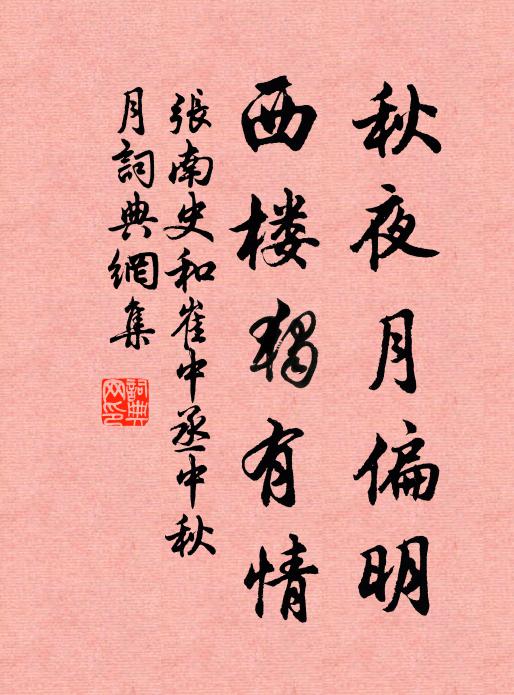 秋夜月偏明
西楼獨有情
張南史和崔中丞中秋
月詞典網集
詞典
网印